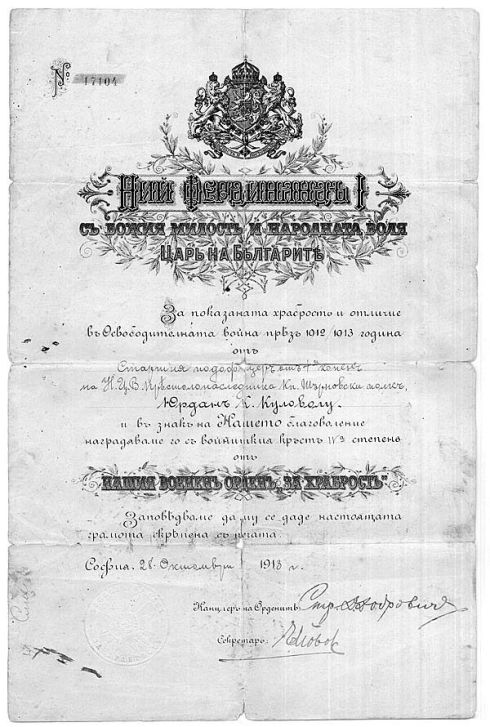 № 17104
НИЙ ФЕРДИНАНДЪ I
СЪ БОЖИЯ МИЛОСТЬ И НАРОДНАТА ВОЛЯ
ЦАРЬ НА БЪЛГАРИТѢ
За показаната храбрость и отличие
въ Освободителната война прѣзъ 1912 1913 година
отъ
Старшия подофицеръ отъ 4й коненъ
на Н.Ц.В. Престолонаслѣдника Кн. Търновски полкъ,
Юрданъ К.
и въ знакъ на Нашето благоволение
наградяваме го съ войнишкия кръстъ IVа степень
отъ
НАШИЯ ВОЕНЕНЪ ОРДЕНЪ „ЗА ХРАБРОСТЬ“
Заповѣдваме да му се даде настоящата
грамота скрѣпена съ печата.
София, 28 Октомври 1913 г.
Канцлеръ на Орденитѣ: Стр. Добровичъ
Секретарь: